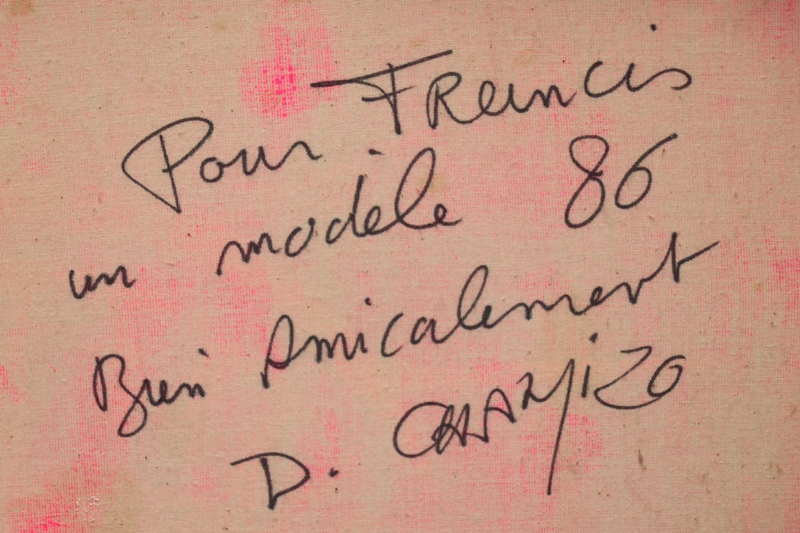 Pour Francis
un modèle 86
Bien Amicalement
D. CHAMIZO